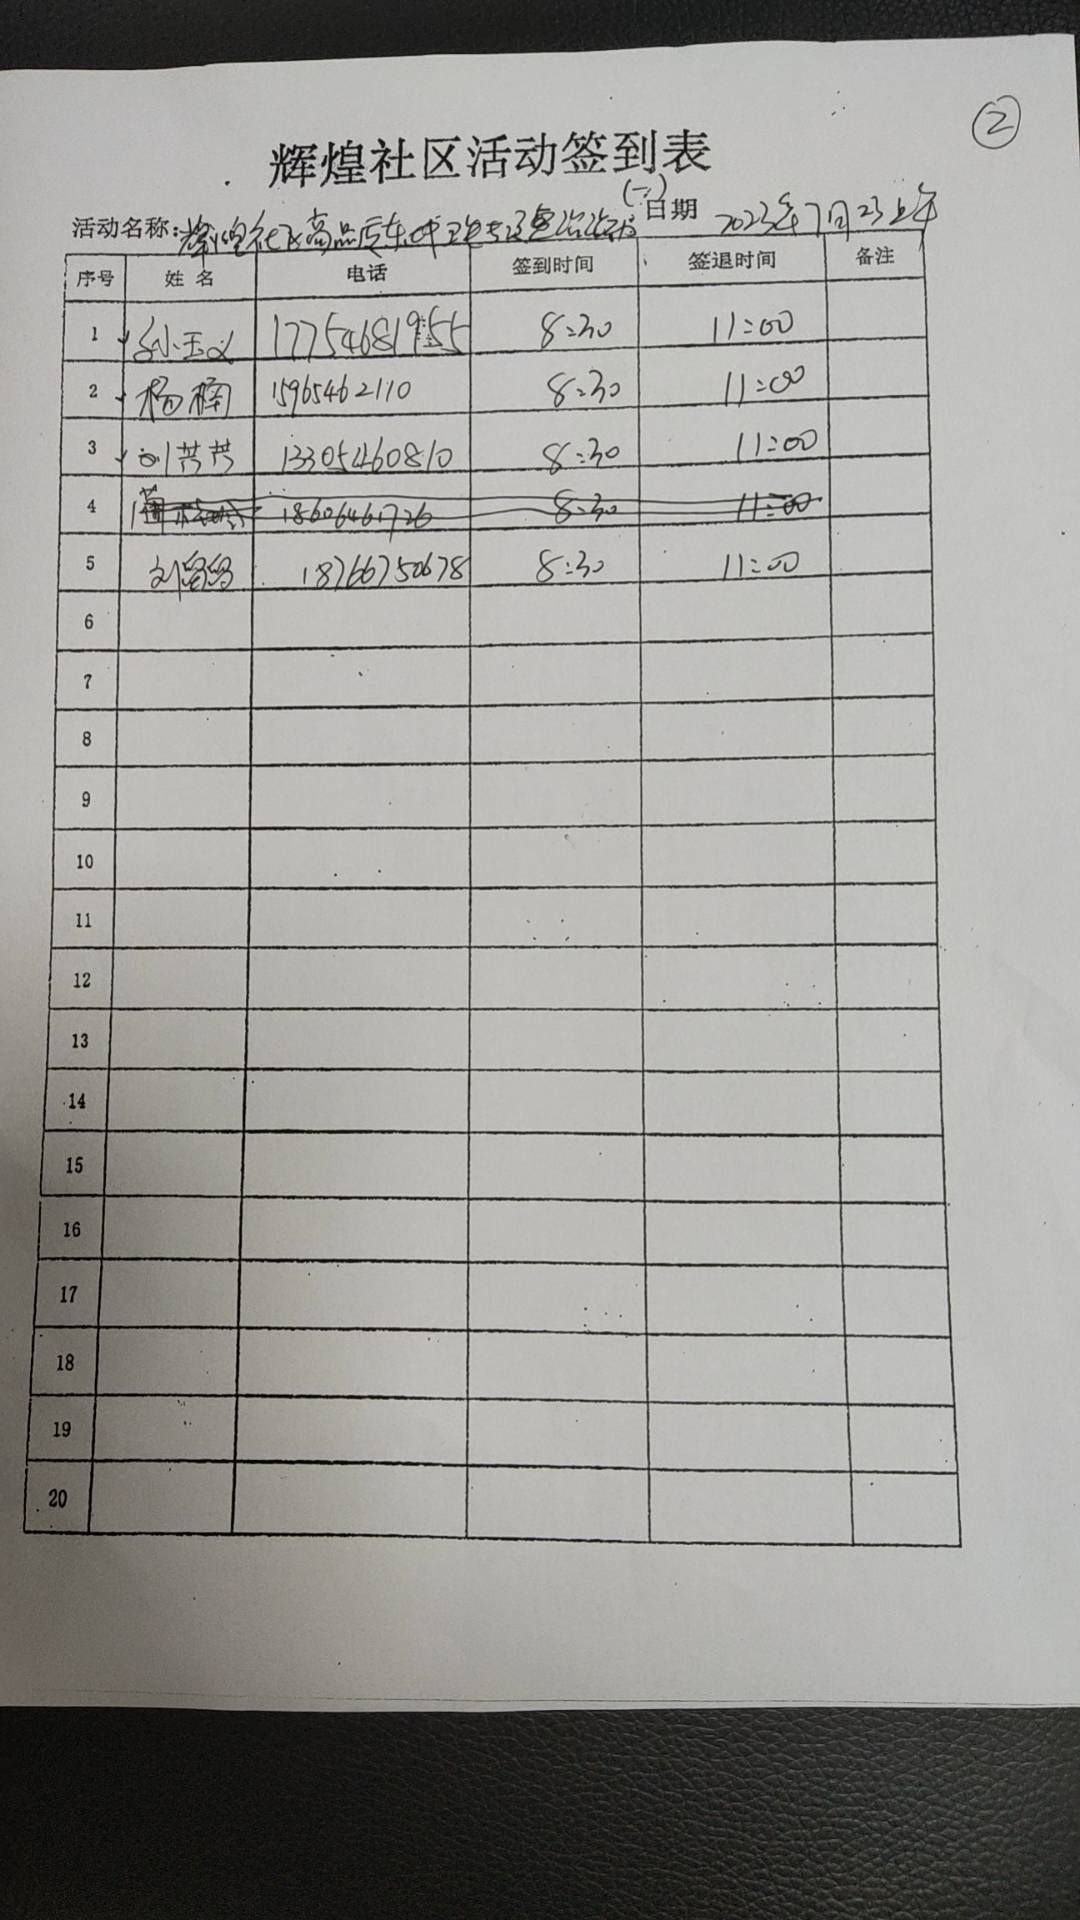 ②
辉煌社区活动签到表
活动名称: 辉煌社区高品质 (二) 日期 2023年7月23上午
序号 姓名 电话 签到时间 签退时间 备注
1 17754681955 8:30 11:00
2 杨楠 15965462110 8:30 11:00
3 刘芳芳 13305460810 8:30 11:00
4 18606461726 8:30 11:00
5 刘 18766750678 8:30 11:00
6
7
8
9
10
11
12
13
14
15
16
17
18
19
20